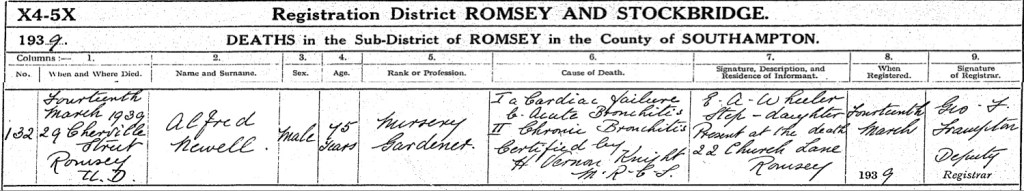 X4-5X
Registration District ROMSEY AND STOCKBRIDGE.
1939. DEATHS in the Sub-District of ROMSEY in the County of SOUTHAMPTON.
Columns :— 1. 2. 3. 4. 5. 6. 7. 8. 9.
No. When and Where Died. Name and Surname. Sex. Age. Rank or Profession. Cause of Death. Signature, Description, and Residence of Informant. When Registered. Signature of Registrar.
132
Fourteenth
March 1939
29 Cherville
Street
Romsey
U.D.
Alfred
Newell.
Male
75
Years
Nursery
Gardener.
I a Cardiac failure
b. Acute Bronchitis
II Chronic Bronchitis
Certified by
H Vernon Knight
M.R.C.S.
E. A. Wheeler
Step-daughter
Present at the death
22 Church Lane
Romsey
Fourteenth
March
1939
Geo. F.
Frampton
Deputy
Registrar